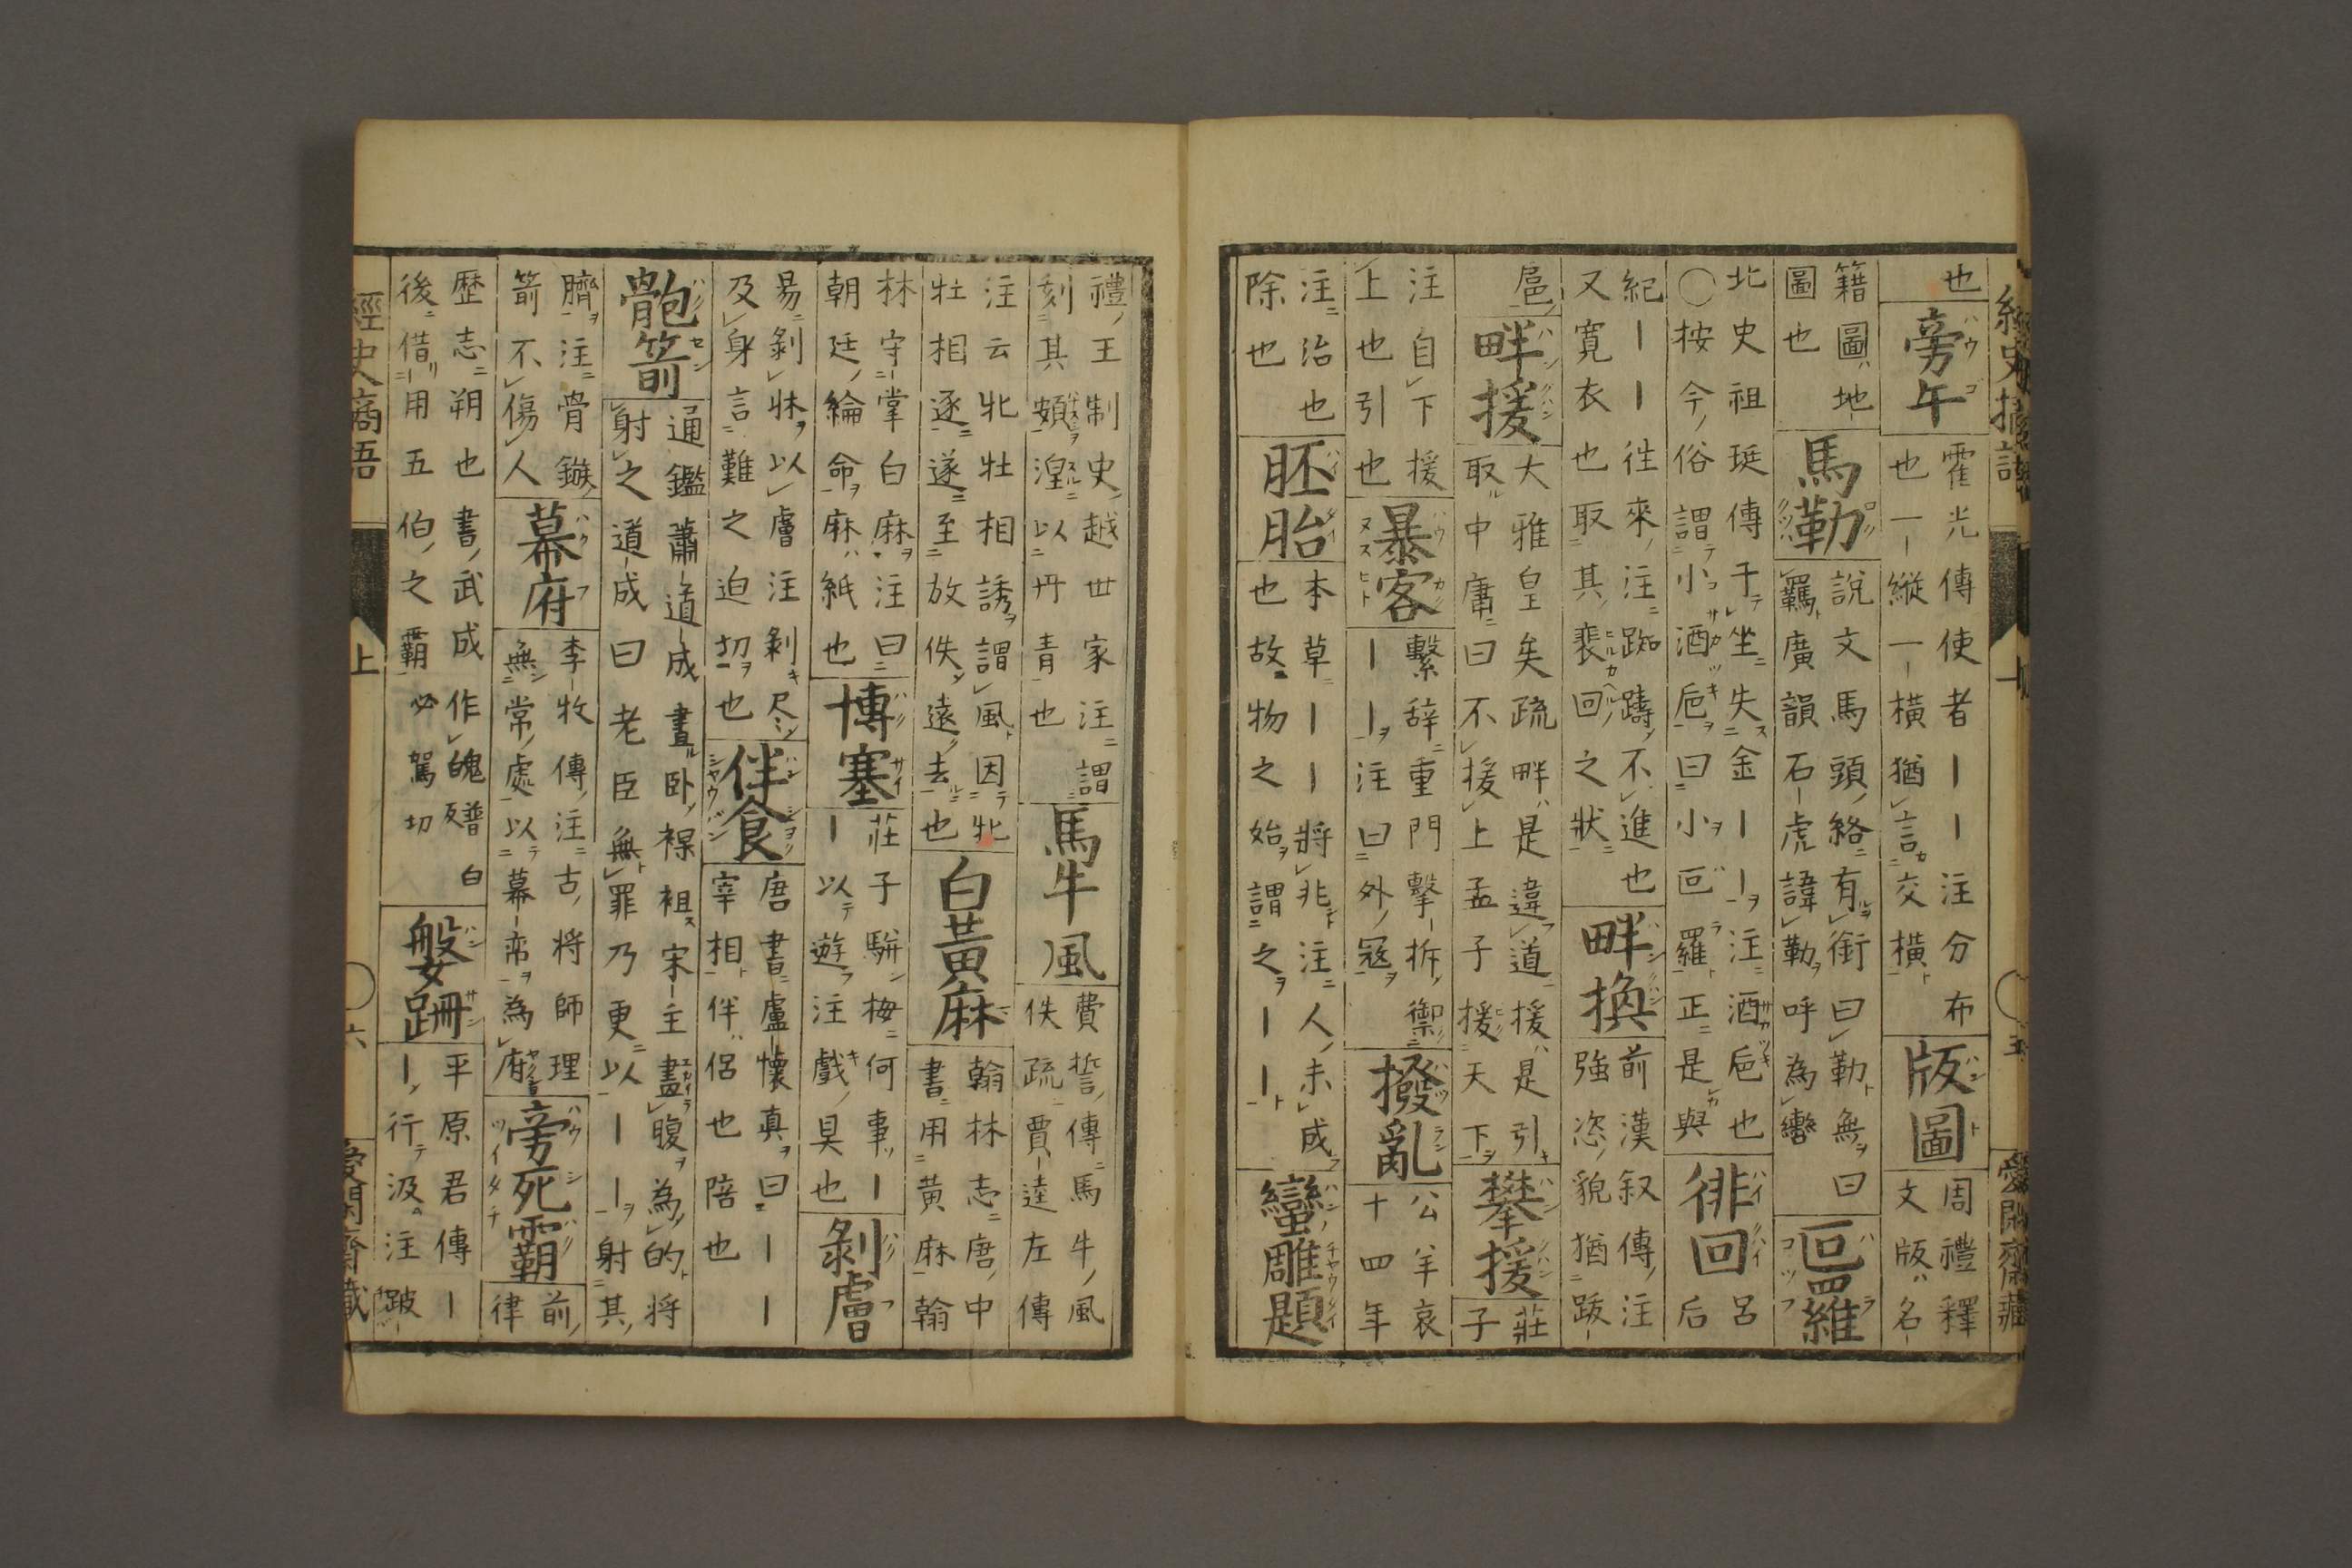 也
旁午
霍光傳使者｜｜注分布
也一縱一橫猶言交橫
版圖
周禮釋
文版名
籍圖地
圖也
馬勒
說文馬頭絡有銜曰勒無曰
羈廣韻石虎諱勒呼為轡
叵羅
北史祖珽傳于坐失金｜｜注酒巵也
〇按今俗謂小酒巵曰小叵羅正是與
徘回
呂
后
紀｜｜徃來注踟躊不進也
又寬衣也取其裴回之狀
畔換
前漢叙傳注
強恣貌猶跋
扈
畔援
大雅皇矣疏畔是違道援是引
取中庸曰不援上孟子援天下
攀援
莊
子
注自下援
上也引也
暴客
繫辞重門擊柝禦
｜｜注曰外寇
撥亂
公羊哀
十四年
注治也
除也
胚胎
本草｜｜將兆注人未成
也故物之始謂之｜｜
蠻雕題
禮王制史越世家注謂
刻其頞湼以丹青也
馬牛風
費誓傳馬牛風
佚疏賈逵左傳
注云牝牡相誘謂風因牝
牡相逐遂至放佚遠去也
白黃麻
翰林志唐中
書用黄麻翰
林守掌白麻注曰
朝廷綸命麻紙也
博塞
莊子駢梅何事｜
｜以遊注戲具也
剝膚
易剝牀以膚注剝
及身言難之迫切也
伴食
唐書盧懷真曰｜｜
宰相伴侶也陪也
骲箭
通鑑蕭道成晝卧裸袒宋主畫腹為的将
射之道成曰老臣無罪乃更以｜｜射其
臍注骨鏃
箭不傷人
幕府
李牧傳注古将師理
無常處以幕帟為府
旁死霸
前
律
歴志朔也書武成作魄
後借用五伯之霸必駕切
媻跚
平原君傳｜
｜行汲注跛
經史摘語
上
六